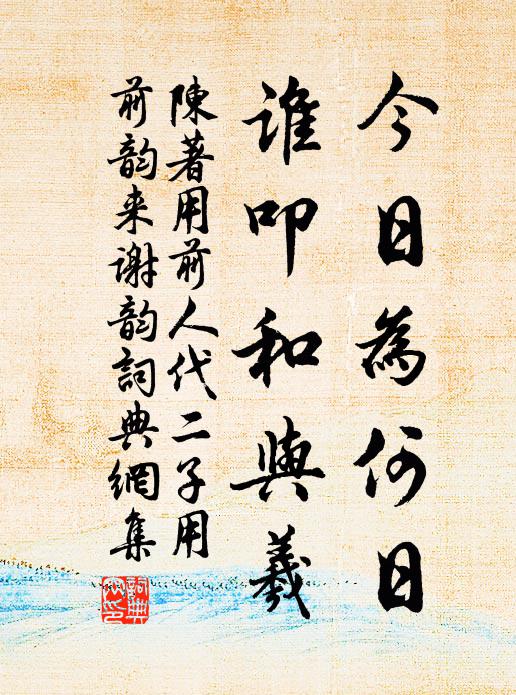 今日為何日
誰叩和與羲
陳著用前人代二子用
前韵来谢韵詞典網集